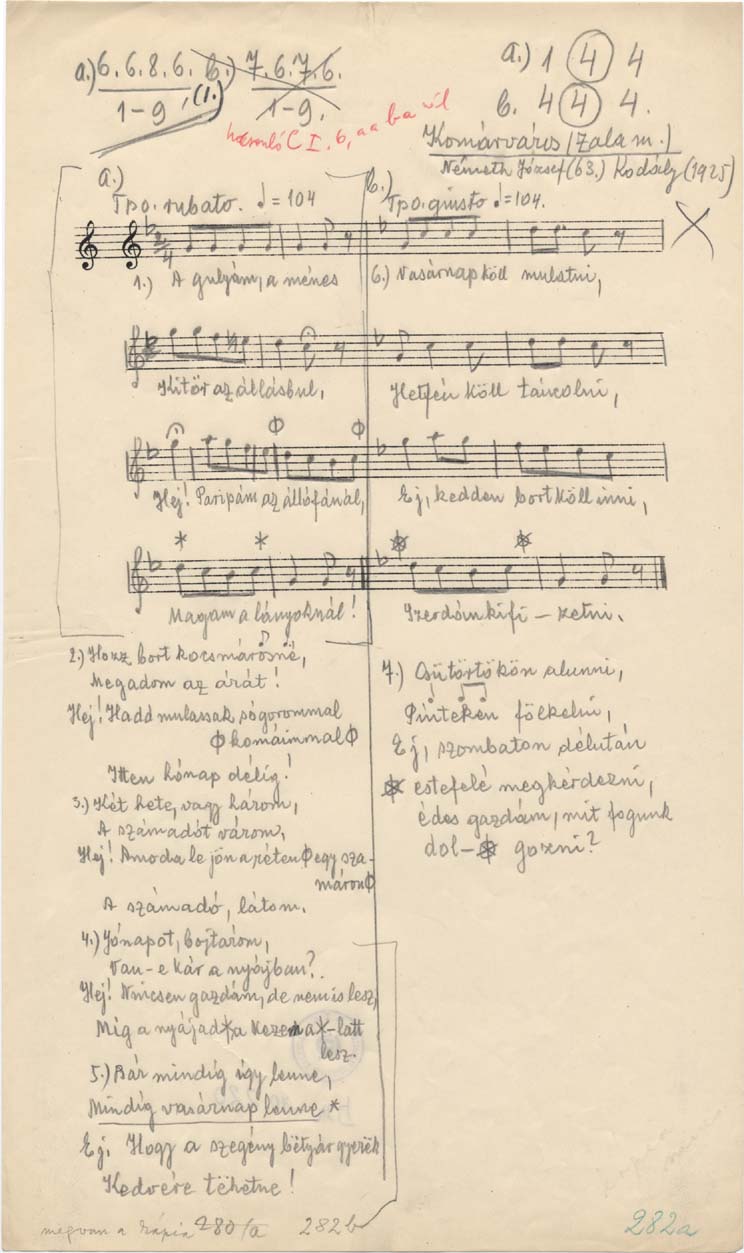 a.) 6. 6. 8. 6. b.) 7. 6. 7. 6.
1-9, (1.) 1-9.
a.) 1 4 4
b. 4 4 4.
C I. b, a a b a
Komárváros (Zala m.)
Németh József (63.) Kodály (1925)
a.)
Tpo. rubato. ♩ = 104
b.)
Tpo. giusto ♩ = 104.
1.) A gulyám, a ménes
6.) Vasárnap köll mulatni,
Kitör az állásbul,
Hetfén köll táncolni,
Hej! Paripám az állófánál,
Ej, kedden bort köll inni,
Magam a lányoknál!
Szerdán kifi – zetni.
2.) Hozz bort kocsmárosné,
Megadom az árát!
Hej! Hadd mulassak sógorommal
Φ komáimmal Φ
Itten hónap délig!
3.) Két hete, vagy három,
A számadót várom,
Hej! Amoda le jön a réten Φ egy sza-
máron Φ
A számadó, látom.
4.) Jónapot, bojtárom,
Van-e kár a nyájban?
Hej! Nincsen gazdám, de nem is lesz,
Míg a nyájad * a kezem a * -latt
lesz.
5.) Bár mindíg így lenne,
Mindíg vasárnap lenne *
Ej, Hogy a szegény bëtyár gyerëk
Kedvére tëhetne!
7.) Csütörtökön alunni,
Pinteken fölkelni,
Ej, szombaton délután
* estefelé megkérdezni,
édes gazdám, mit fogunk
dol- * gozni?
megvan a 280/a 282b
282a